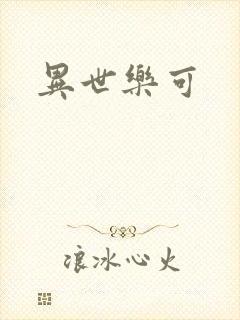 異世樂可
浪冰心火